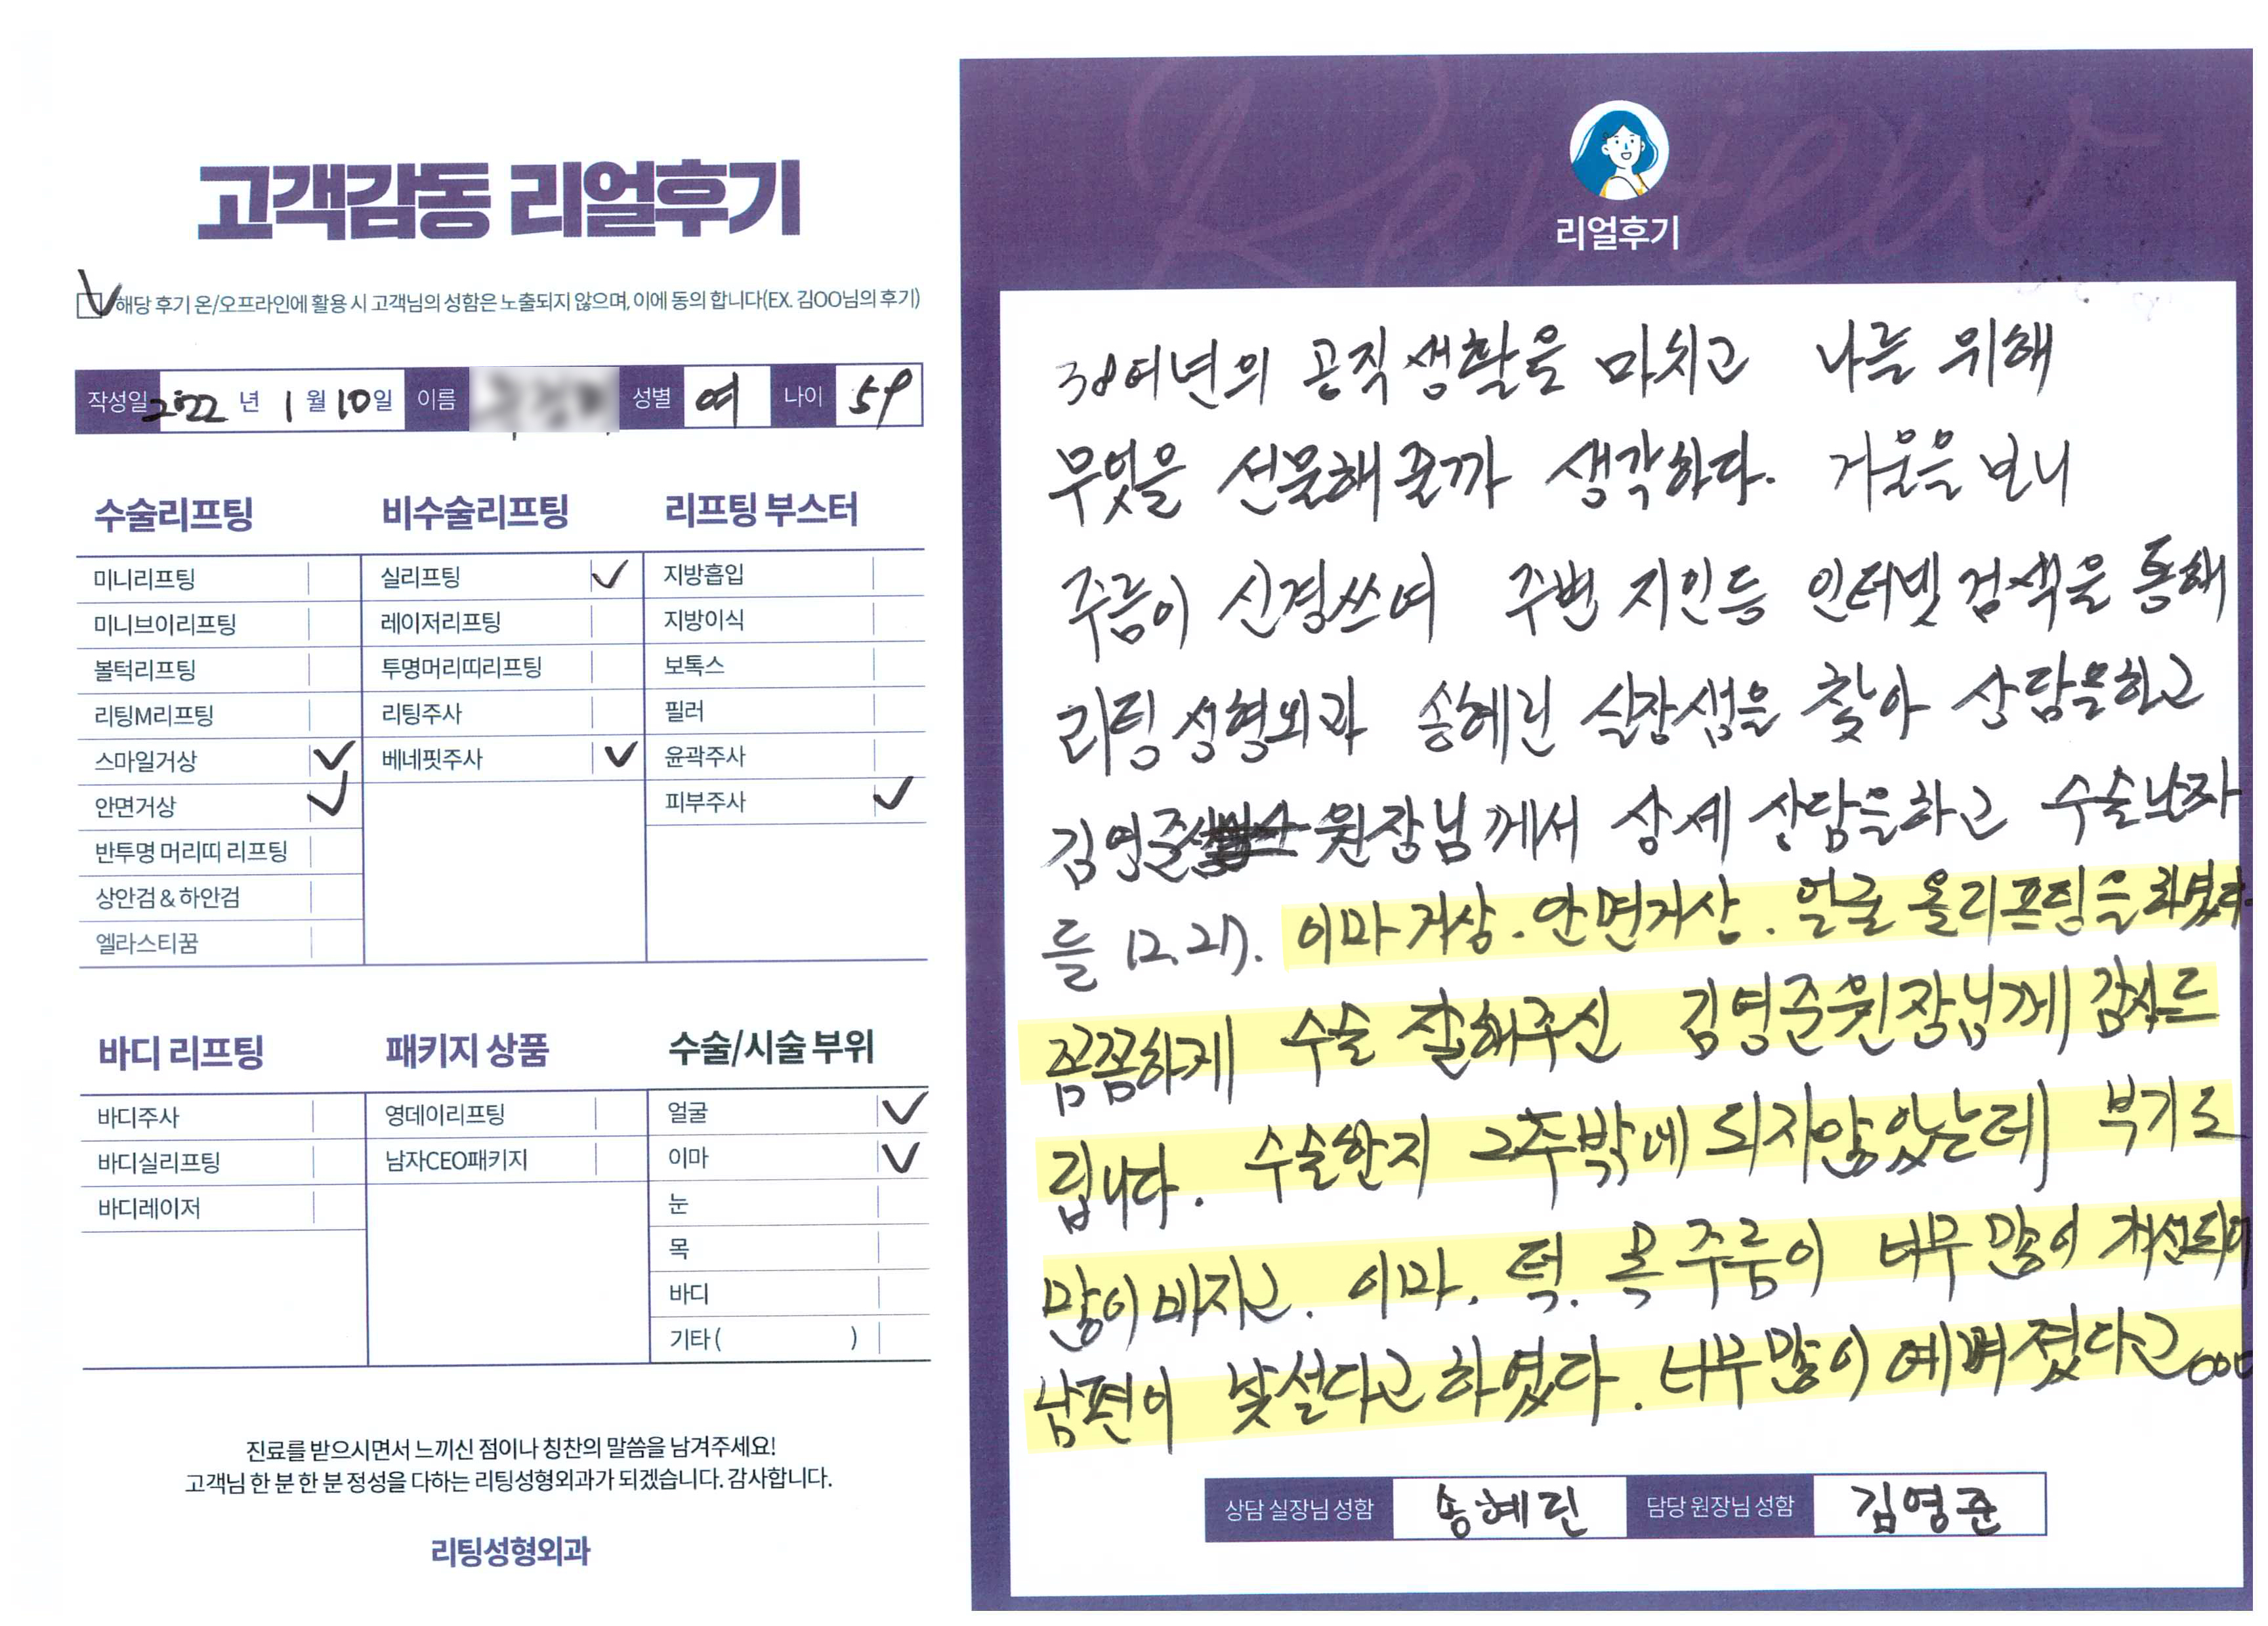 고객감동 리얼후기
해당 후기 온/오프라인에 활용 시 고객님의 성함은 노출되지 않으며, 이에 동의 합니다(EX. 김OO님의 후기)
작성일 2022 년 1 월 10 일 이름 성별 여 나이 59
수술리프팅
미니리프팅
미니브이리프팅
볼턱리프팅
리팅M리프팅
스마일거상
안면거상
반투명 머리띠 리프팅
상안검 & 하안검
엘라스티꿈
비수술리프팅
실리프팅
레이저리프팅
투명머리띠리프팅
리팅주사
베네핏주사
리프팅 부스터
지방흡입
지방이식
보톡스
필러
윤곽주사
피부주사
바디 리프팅
바디주사
바디실리프팅
바디레이저
패키지 상품
영데이리프팅
남자CEO패키지
수술/시술 부위
얼굴
이마
눈
목
바디
기타 ( )
진료를 받으시면서 느끼신 점이나 칭찬의 말씀을 남겨주세요!
고객님 한 분 한 분 정성을 다하는 리팅성형외과가 되겠습니다. 감사합니다.
리팅성형외과
Review
리얼후기
38여년의 공직생활을 마치고 나를 위해
무엇을 선물해줄까 생각하다. 거울을 보니
주름이 신경쓰여 주변 지인등 인터넷 검색을 통해
리팅성형외과 송혜린 실장샘을 찾아 상담을하고
김영준 원장님께서 상세 상담을하고 수술날자
를 12.27. 이마거상. 안면거상. 얼굴 올리프팅을 하였다
꼼꼼하게 수술 잘해주신 김영준원장님께 감사드
립니다. 수술한지 2주밖에 되지않았는데 부기도
많이 빠지고. 이마. 턱. 목주름이 너무 많이 개선되어
남편이 낯설다고 하였다. 너무많이 예뻐졌다고ooo
상담 실장님 성함 송혜린 담당 원장님 성함 김영준